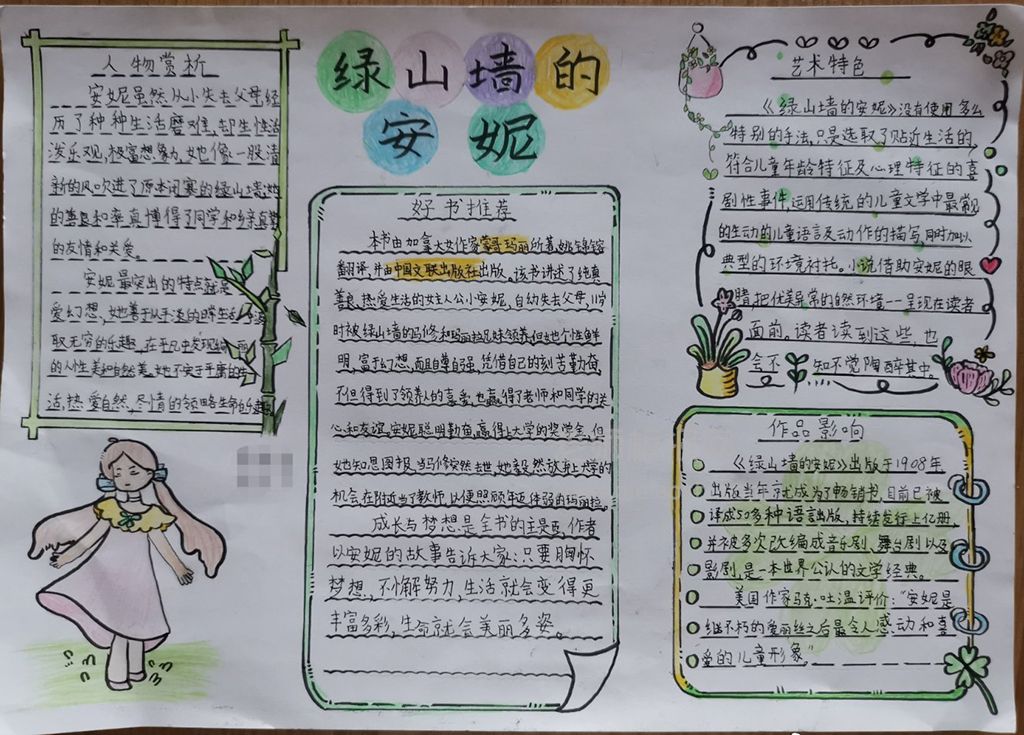 绿山墙的
安妮
人物赏析
安妮虽然从小失去父母,经
历了种种生活磨难,却生性活
泼乐观,极富想象力,她像一股清
新的风吹进了原本沉寂的绿山墙,她
的善良和率真博得了同学和乡亲真挚
的友情和关爱。
安妮最突出的特点就是
爱幻想,她善于从平淡的日常生活中汲
取无穷的乐趣,在平凡中发现
的人性美和自然美。她不安于平庸的生
活,热爱自然,尽情的领略生命的乐趣。
好书推荐
本书由加拿大女作家蒙哥玛丽所著,姚锦镕
翻译,并由中国文联出版社出版。该书讲述了纯真
善良、热爱生活的女主人公小安妮,自幼失去父母,11岁
时被绿山墙的马修和玛丽拉兄妹领养,但她个性鲜
明,富于幻想,而且自尊自强,凭借自己的刻苦勤奋,
不但得到了领养人的喜爱,也赢得了老师和同学的关
心和友谊。安妮聪明勤奋,赢得上大学的奖学金,但
她知恩图报,当马修突然去世,她毅然放弃上大学的
机会,在附近当了教师,以便照顾年迈体弱的玛丽拉。
成长与梦想是全书的主题,作者
以安妮的故事告诉大家:只要胸怀
梦想,不懈努力,生活就会变得更
丰富多彩,生命就会美丽多姿。
艺术特色
《绿山墙的安妮》没有使用多么
特别的手法,只是选取了贴近生活的,
符合儿童年龄特征及心理特征的喜
剧性事件,运用传统的儿童文学中最常规
的生动的儿童语言及动作的描写,同时加以
典型的环境衬托。小说借助安妮的眼
睛,把优美异常的自然环境一一呈现在读者
面前。读者读到这些,也
会不知不觉陶醉其中。
作品影响
《绿山墙的安妮》出版于1908年
出版当年就成为了畅销书,目前已被
译成50多种语言出版,持续发行上亿册,
并被多次改编成音乐剧、舞台剧以及
影剧,是一本世界公认的文学经典。
美国作家马克·吐温评价:“安妮是
继不朽的爱丽丝之后最令人感动和喜
爱的儿童形象”。